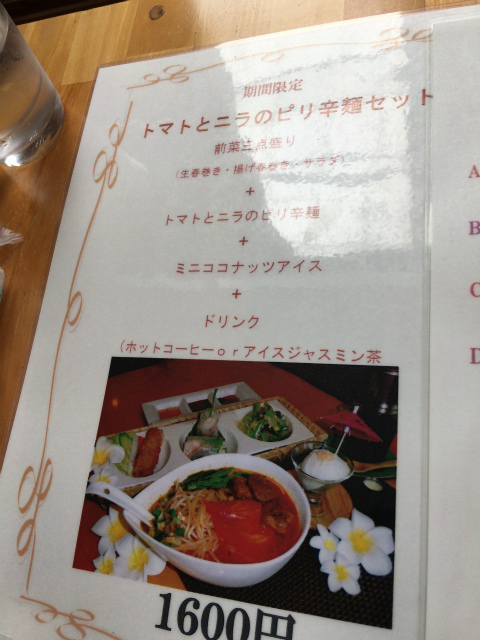 期間限定
トマトとニラのピリ辛麺セット
前菜三点盛り
(生春巻き・揚げ春巻き・サラダ)
+
トマトとニラのピリ辛麺
+
ミニココナッツアイス
+
ドリンク
(ホットコーヒーorアイスジャスミン茶
1600円
A
B
C
D